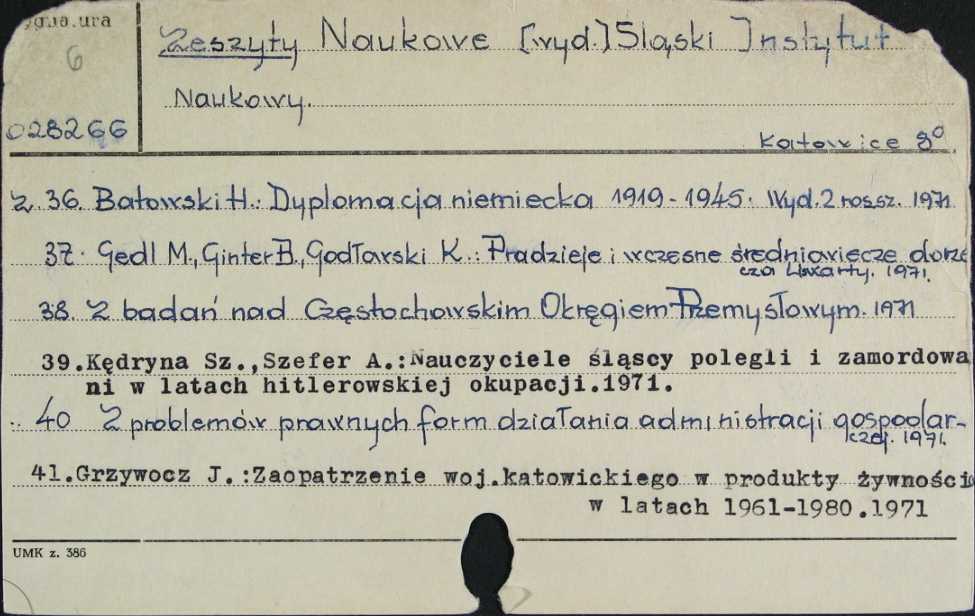 ygna.ura
6
028266
Zeszyty Naukowe [wyd.] Śląski Instytut
Naukowy.
Katowice 8°
z. 36. Batowski H.: Dyplomacja niemiecka 1919-1945. Wyd. 2 rossz. 1971
37. Gedl M., Ginter B., Godławski K.: Pradzieje i wczesne średniowiecze dorze
cza Liswarty. 1971.
38. Z badań nad Częstochowskim Okręgiem Przemysłowym. 1971
39.Kędryna Sz.,Szefer A.:Nauczyciele śląscy polegli i zamordowa
ni w latach hitlerowskiej okupacji.1971.
40 Z problemów prawnych form działania administracji gospodar-
czej. 1971.
41.Grzywocz J.:Zaopatrzenie woj.katowickiego w produkty żywności
w latach 1961-1980.1971
UMK z. 386